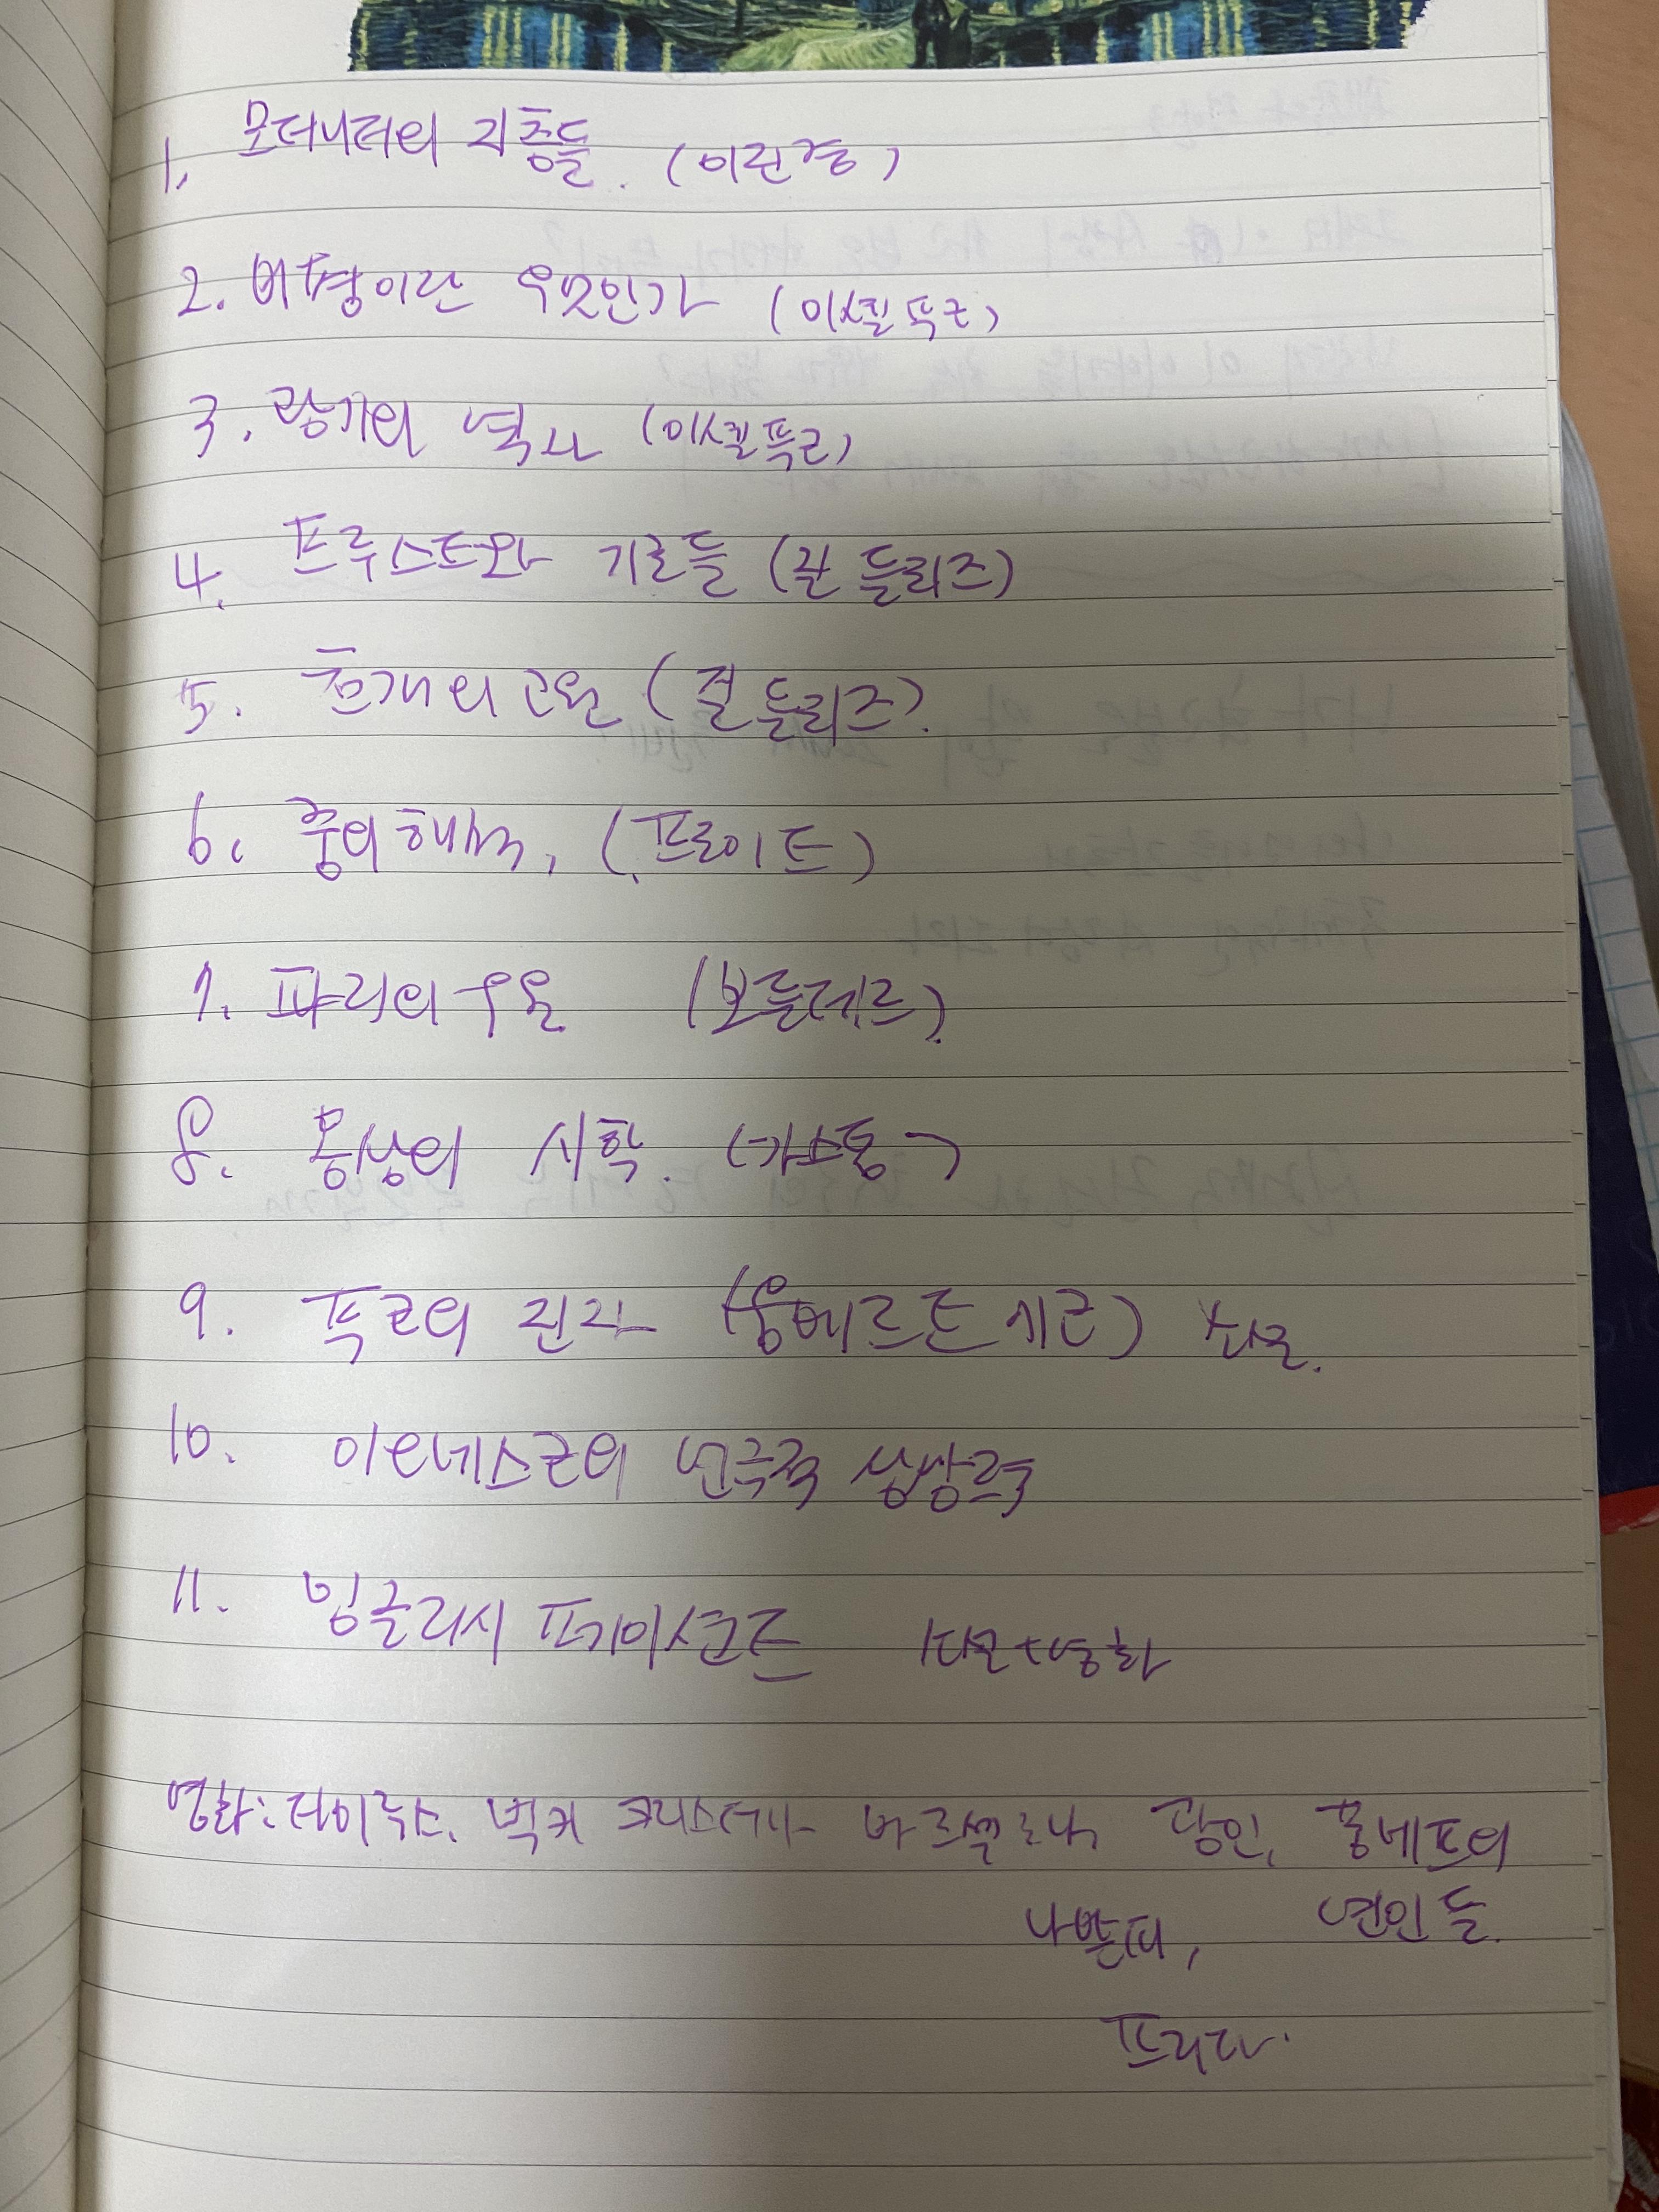 1. 모더니티의 지층들. (이진경)
2. 비평이란 무엇인가 (미셸 푸코)
3. 광기의 역사 (미셸 푸코)
4. 프루스트와 기호들 (질 들뢰즈)
5. 천개의 고원 (질 들뢰즈).
6. 꿈의 해석, (프로이트)
7. 파리의 우울 (보들레르).
8. 몽상의 시학. (가스통)
9. 푸코의 진자 (움베르토 에코)
10. 이오네스코의 연극적 상상력
11. 잉글리시 페이션트 +영화
영화: 빅키 크리스티나 바르셀로나 광인, 퐁네프의
나쁜피, 연인들.
프리다.